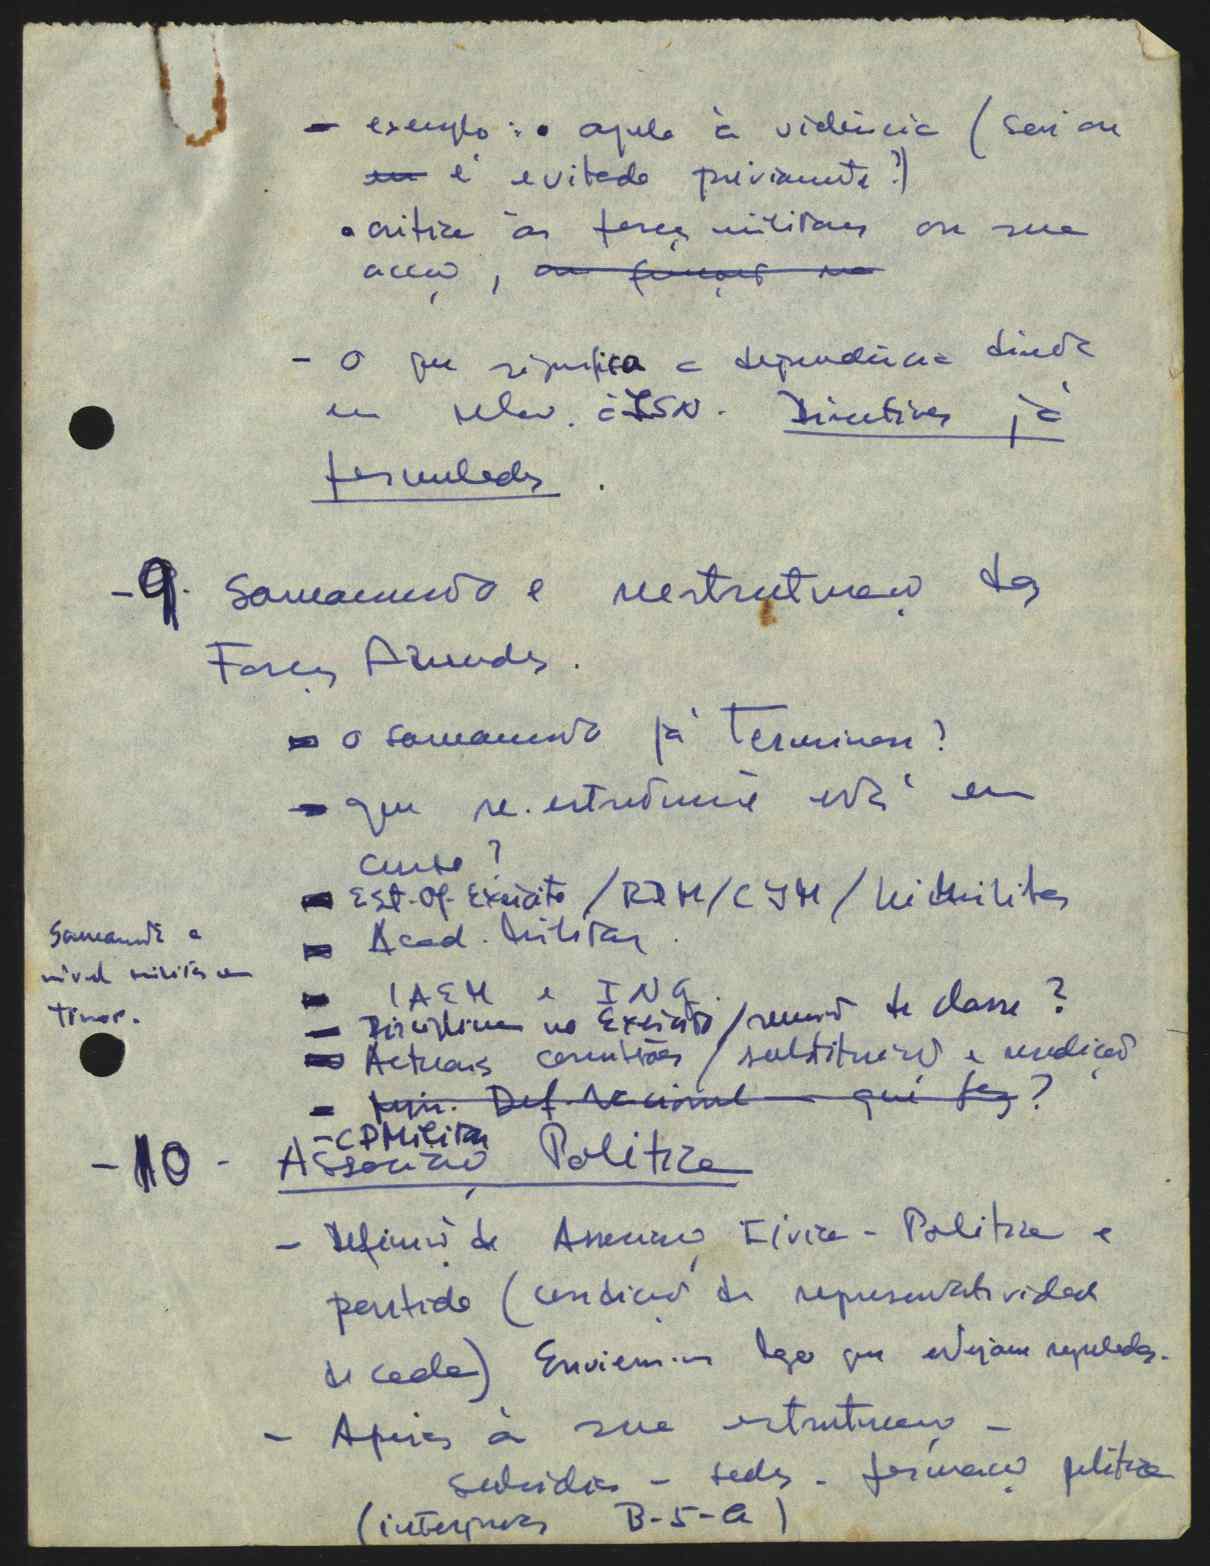 - exemplo: • apelo à violência (será ou
é evitado previamente?)
• crítica às forças militares ou sua
acção, ou funções na
- o que significa a dependência directa
em relação à JSN. Directivas já
formuladas.
- 9. Saneamento e reestruturação das
Forças Armadas.
- o saneamento já terminou?
- que re-estruturação está em
curso?
- Est. Of. Exército / RDM / CJM /
- Acad. Militar.
- IAEM e
- Disciplina no Exército / de classe?
- Actuais comissões / substituição e rendição
- Min. Def. Nacional - que faz?
- CP Militar
Saneamento a
nível militar em
Timor.
- 10 - Associação Política
- Definição de Associação Cívica - Política e
partido (condição de representatividade
de cada) Enviem-se logo que estejam reguladas.
- Apoios à sua estruturação -
subsídios - sedes - formação política
(B-5-a)